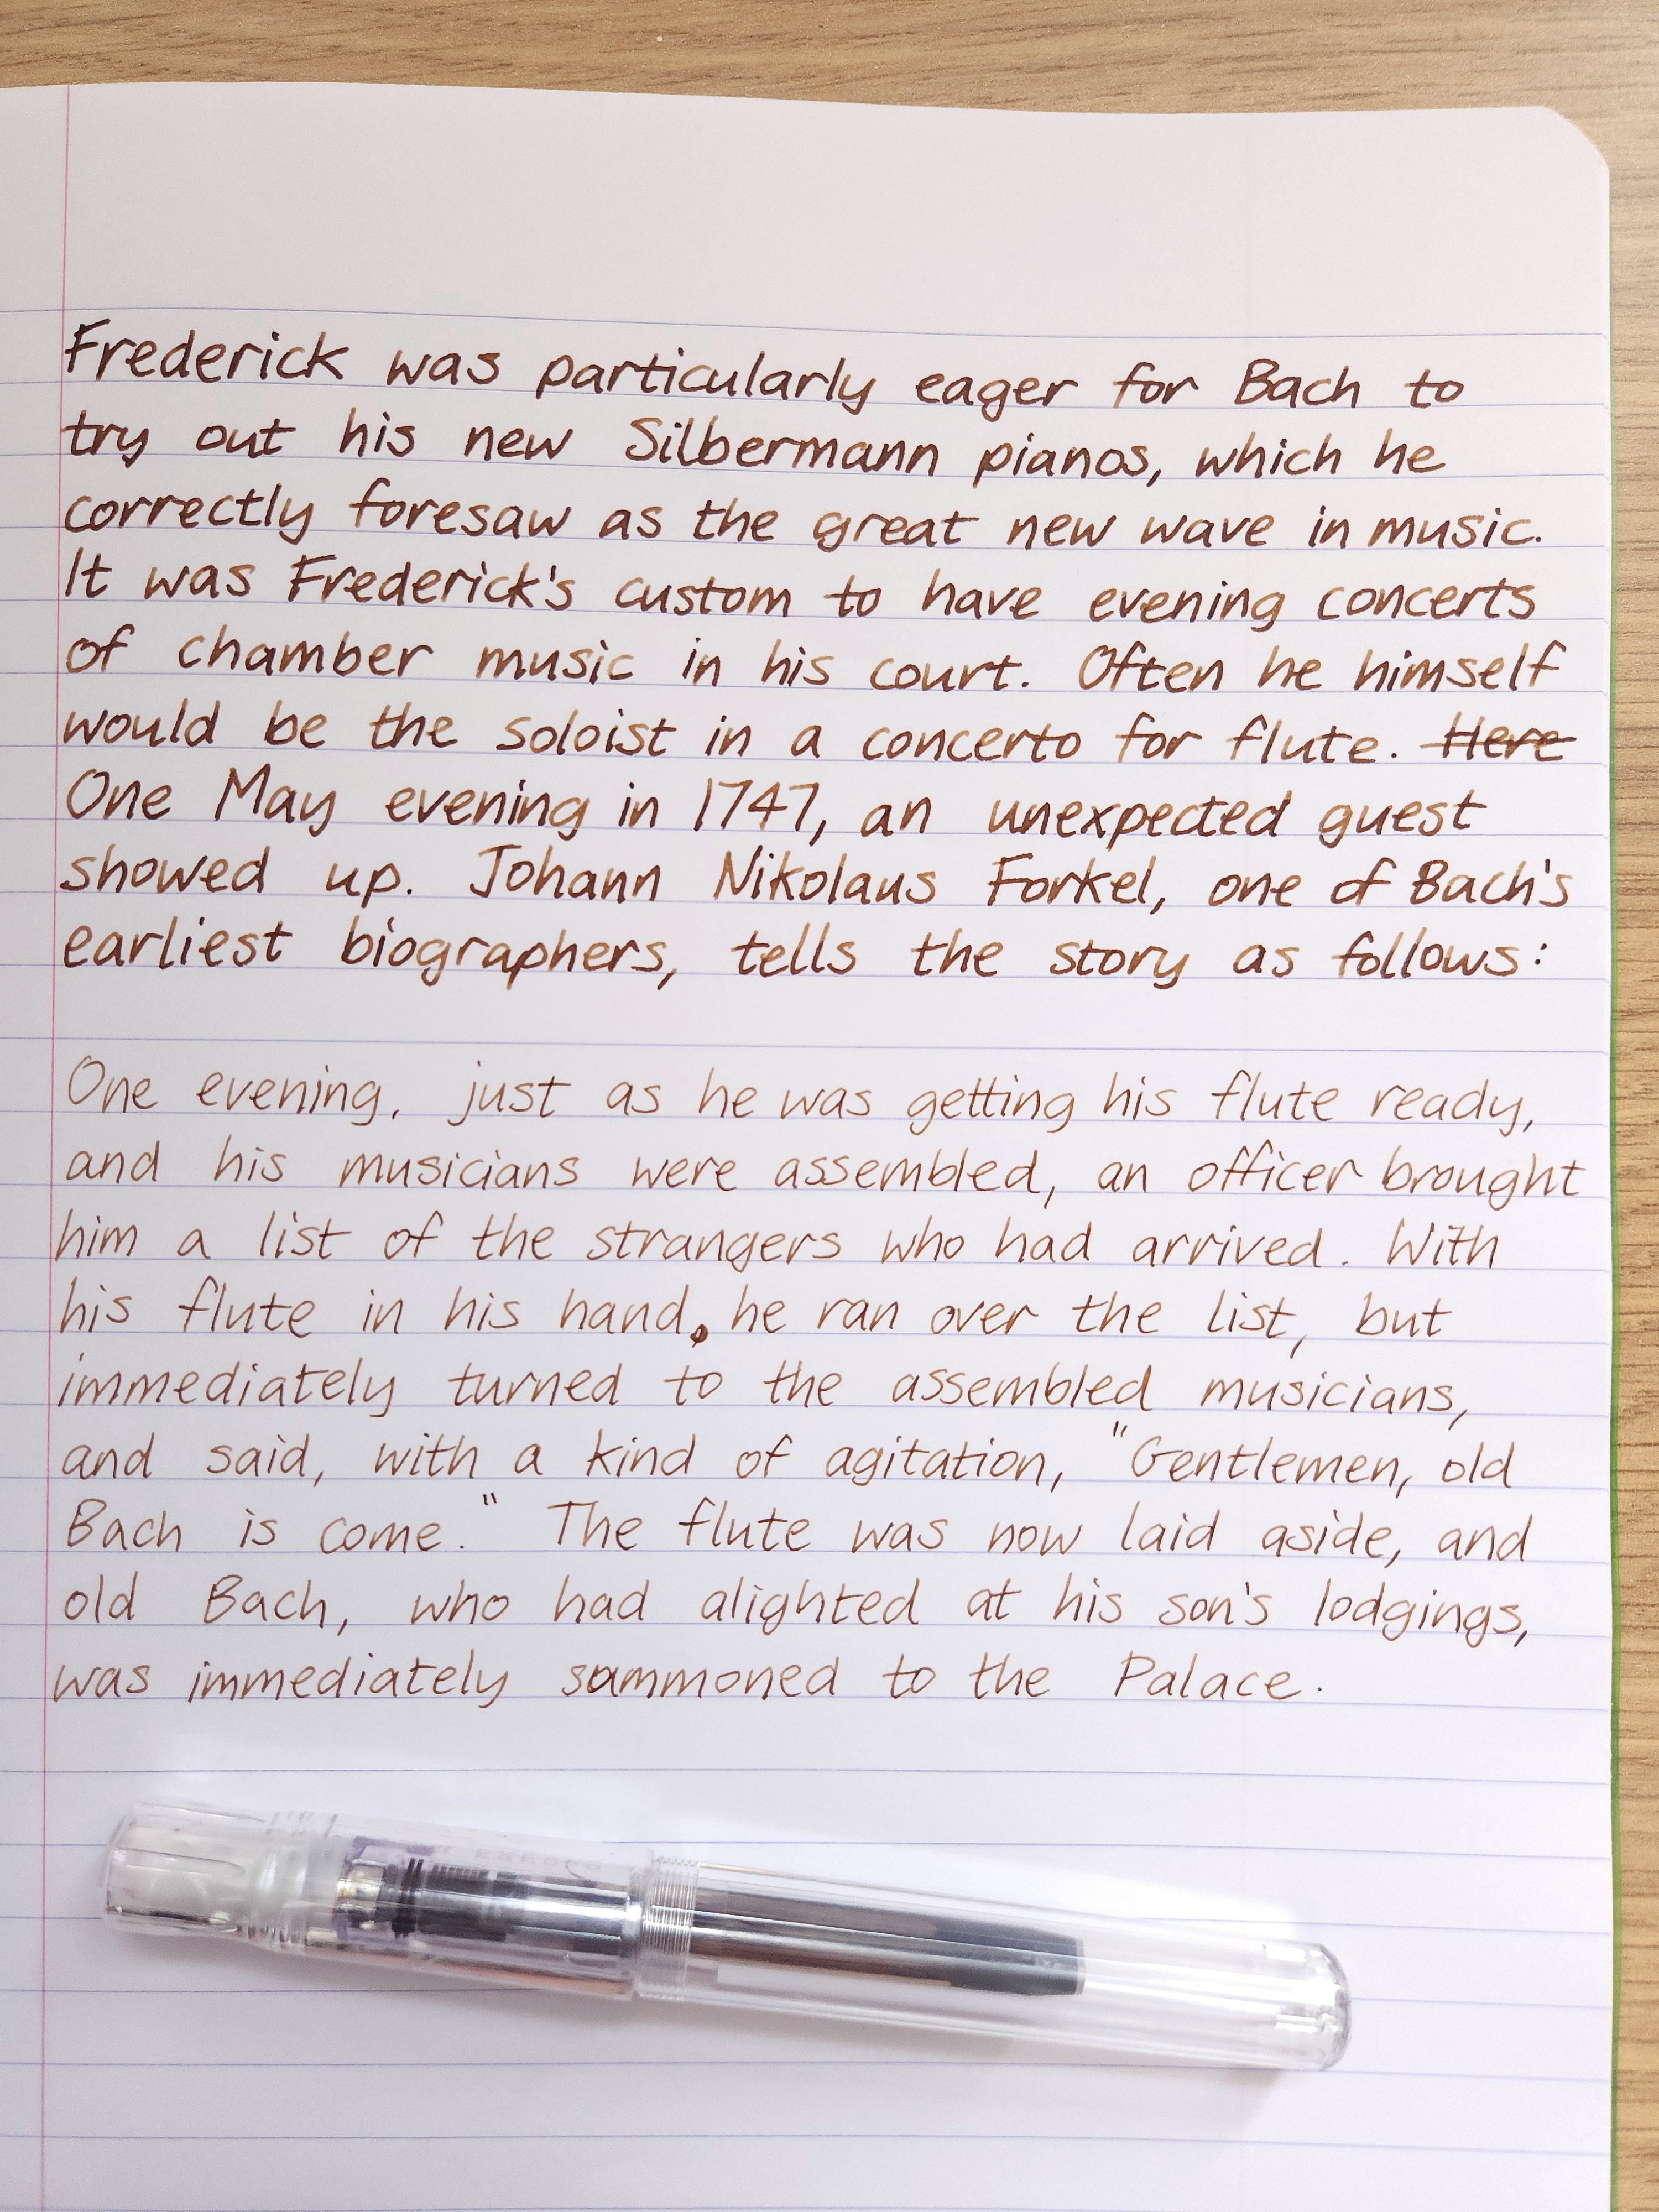 Frederick was particularly eager for Bach to
try out his new Silbermann pianos, which he
correctly foresaw as the great new wave in music.
It was Frederick's custom to have evening concerts
of chamber music in his court. Often he himself
would be the soloist in a concerto for flute. Here
One May evening in 1747, an unexpected guest
showed up. Johann Nikolaus Forkel, one of Bach's
earliest biographers, tells the story as follows:
One evening, just as he was getting his flute ready,
and his musicians were assembled, an officer brought
him a list of the strangers who had arrived. With
his flute in his hand, he ran over the list, but
immediately turned to the assembled musicians,
and said, with a kind of agitation, "Gentlemen, old
Bach is come." The flute was now laid aside, and
old Bach, who had alighted at his son's lodgings,
was immediately summoned to the Palace.